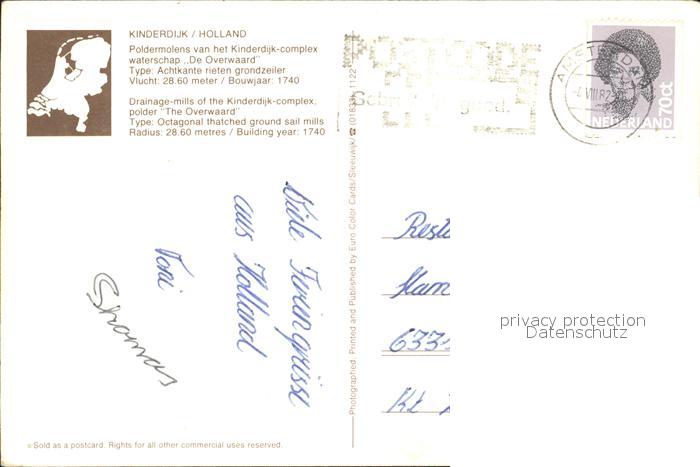 KINDERDIJK / HOLLAND
Poldermolens van het Kinderdijk-complex
waterschap ,,De Overwaard''
Type: Achtkante rieten grondzeiler
Vlucht: 28.60 meter / Bouwjaar: 1740
Drainage-mills of the Kinderdijk-complex,
polder "The Overwaard"
Type: Octagonal thatched ground sail mills
Radius: 28.60 metres / Building year: 1740
Viele Feriengrüsse
aus Holland
Toni
Photographed, Printed and Published by Euro Color Cards/Sleeuwijk/
POSTCODE
goed.
AMSTERDAM
VIII 82
NEDERLAND
70ct
Resta
6331
Kt
privacy protection
Datenschutz
Sold as a postcard. Rights for all other commercial uses reserved.